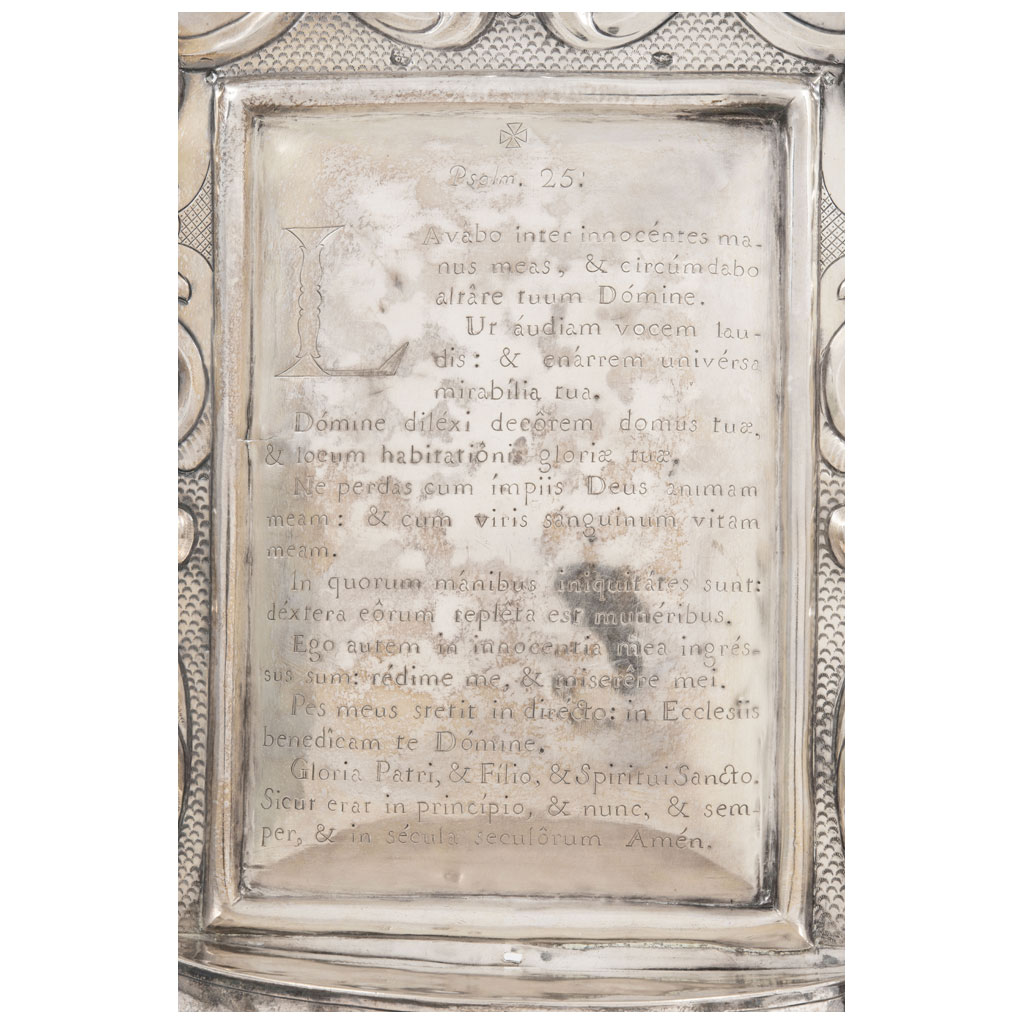 Psalm. 25:
LAvabo inter innocéntes ma-
nus meas, & circúmdabo
altâre tuum Dómine.
Ut áudiam vocem lau-
dis: & enárrem univérsa
mirabília tua.
Dómine diléxi decôrem domus tuæ,
& locum habitatiônis gloriæ tuæ,
Ne perdas cum ímpiis Deus ánimam
meam: & cum viris sánguinum vitam
meam.
In quorum mánibus iniquitátes sunt:
déxtera eôrum replêta est munéribus.
Ego autem in innocentia mea ingrés-
sus sum: rédime me, & miserêre mei.
Pes meus stetit in dirécto: in Ecclesiis
benedîcam te Dómine.
Gloria Patri, & Fílio, & Spiritui Sancto.
Sicut erat in princípio, & nunc, & sem-
per, & in sécula seculôrum Amén.